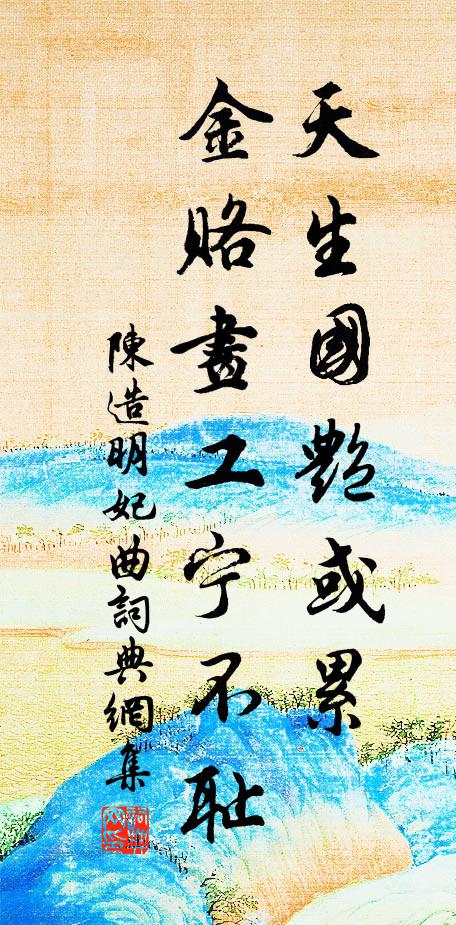 天生國艷或累
金賂畫工宁不耻
陳造明妃曲詞典網集